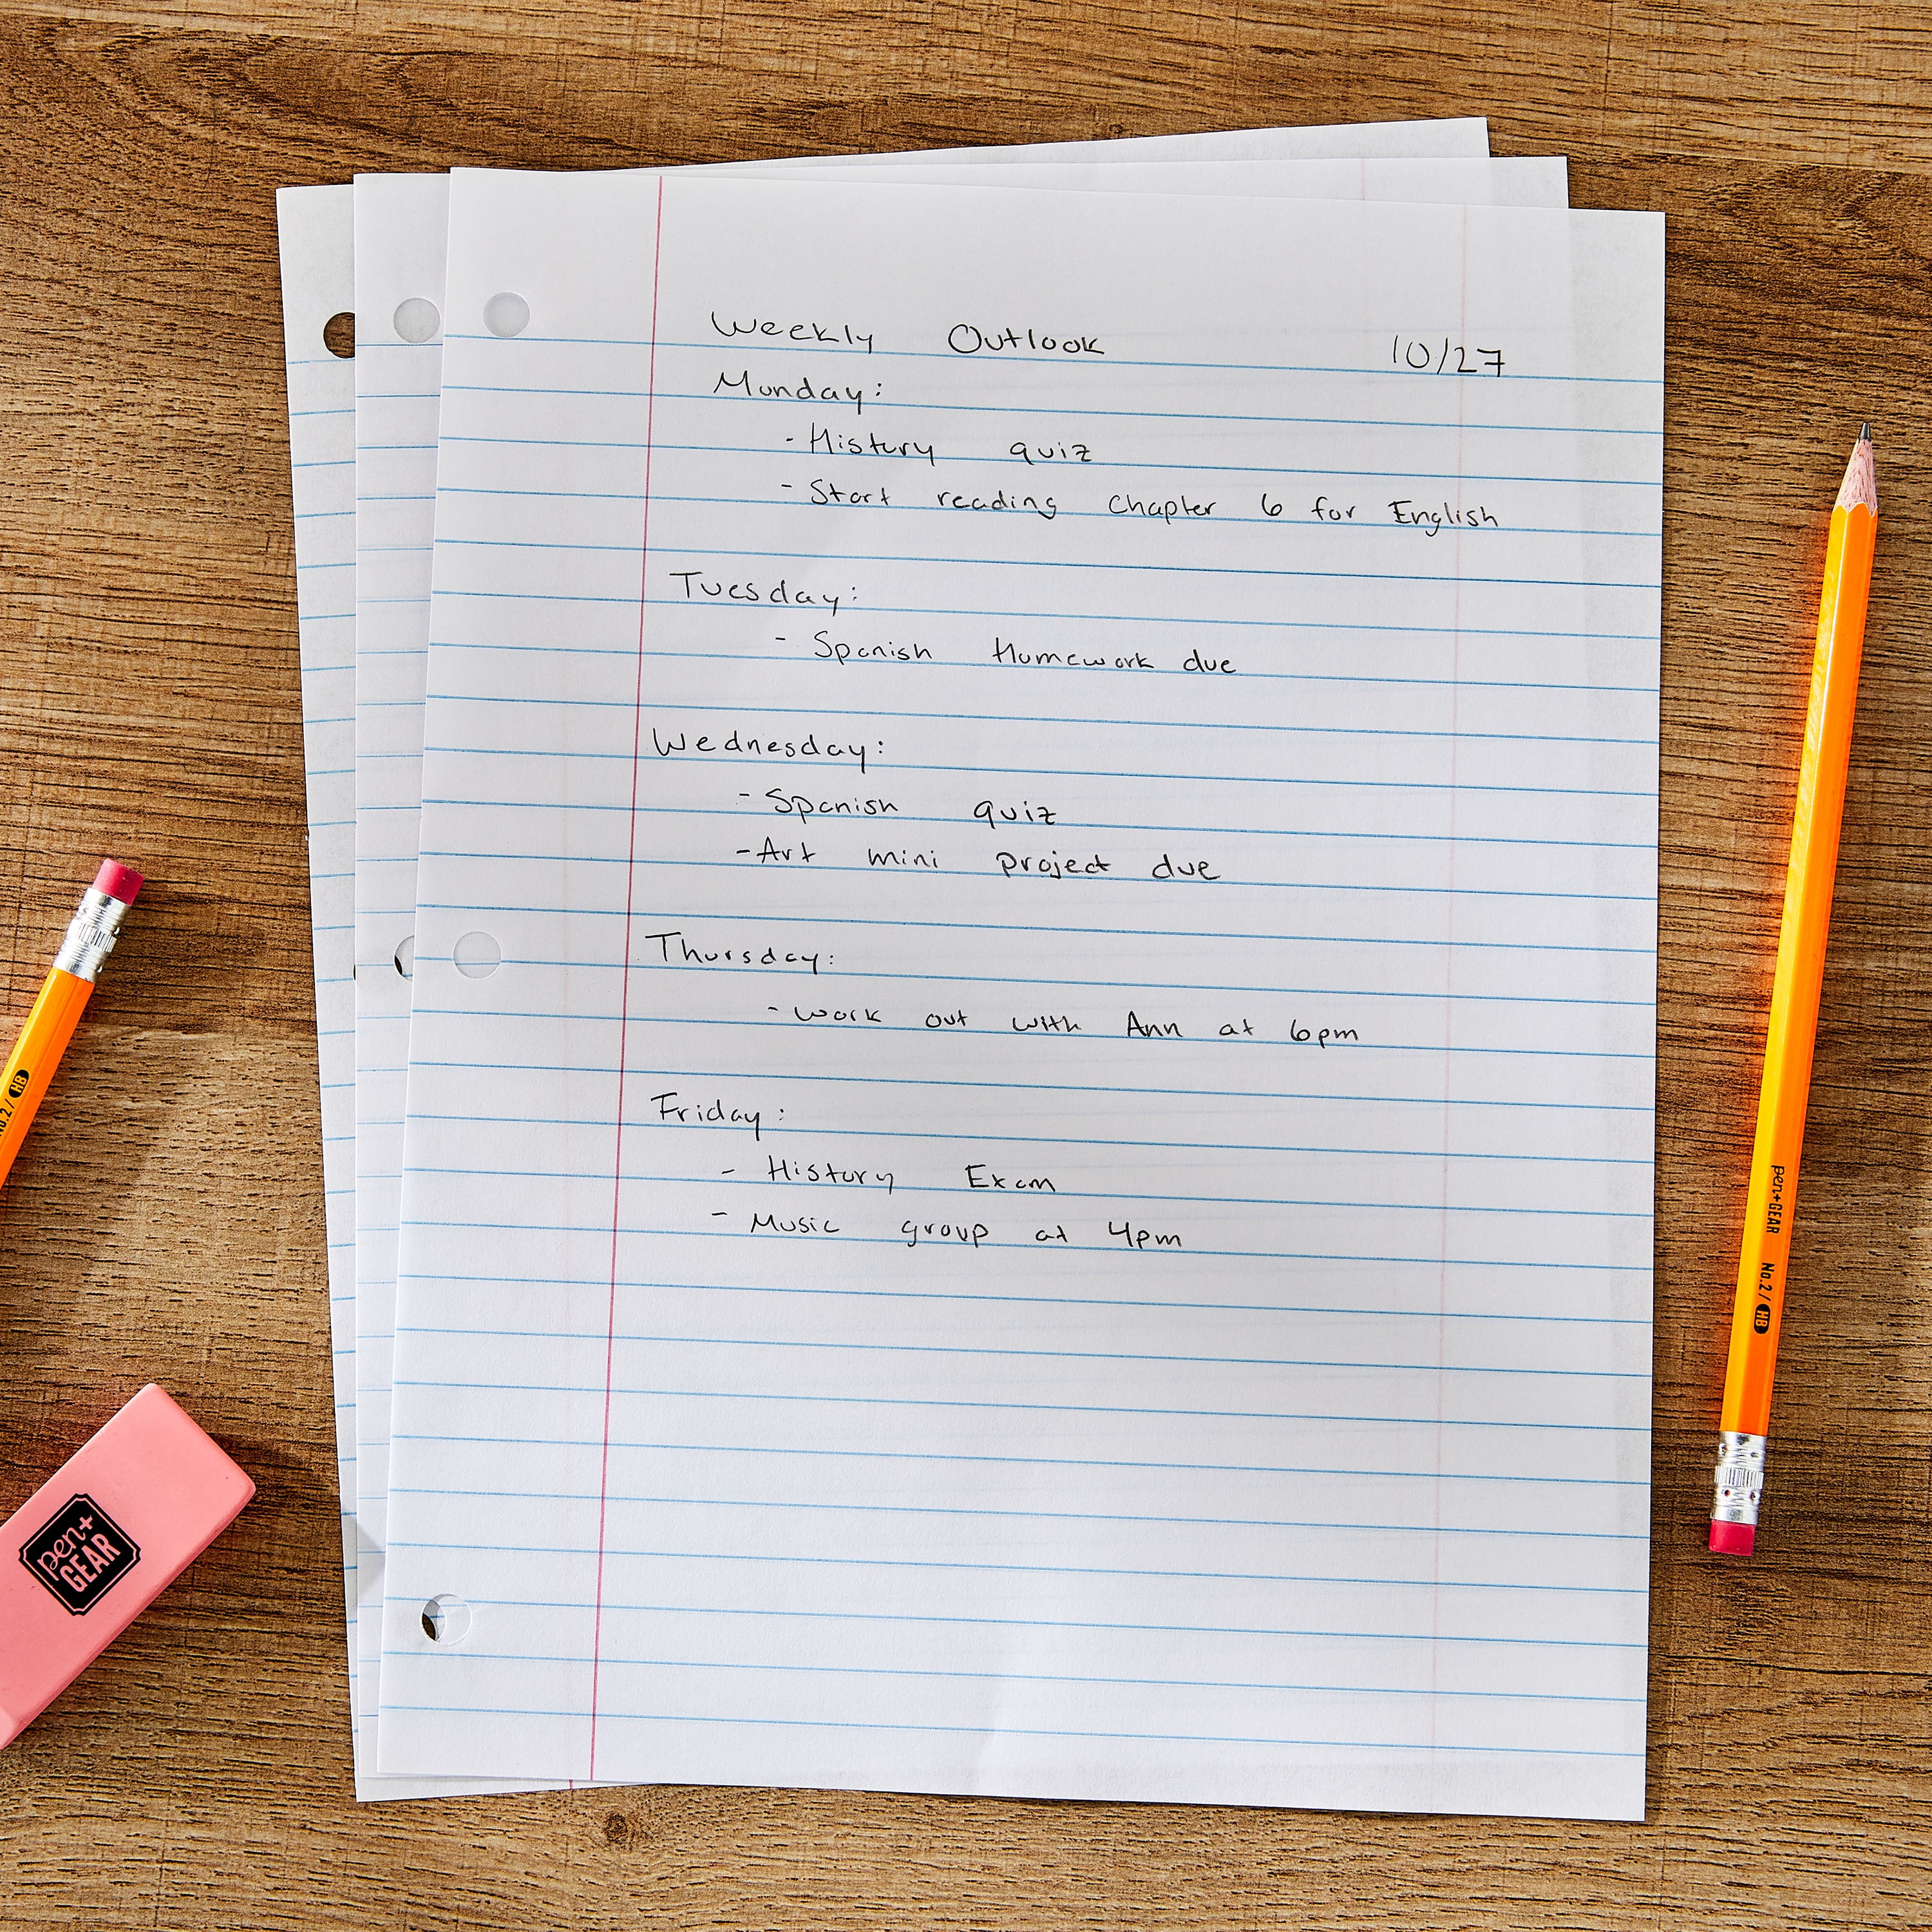 Weekly Outlook 10/27
Monday:
- History quiz
- Start reading Chapter 6 for English
Tuesday:
- Spanish Homework due
Wednesday:
- Spanish quiz
- Art mini project due
Thursday:
- Work out with Ann at 6pm
Friday:
- History Exam
- Music group at 4pm
pen+GEAR No.2 / HB
No.2 / HB
pen+
GEAR